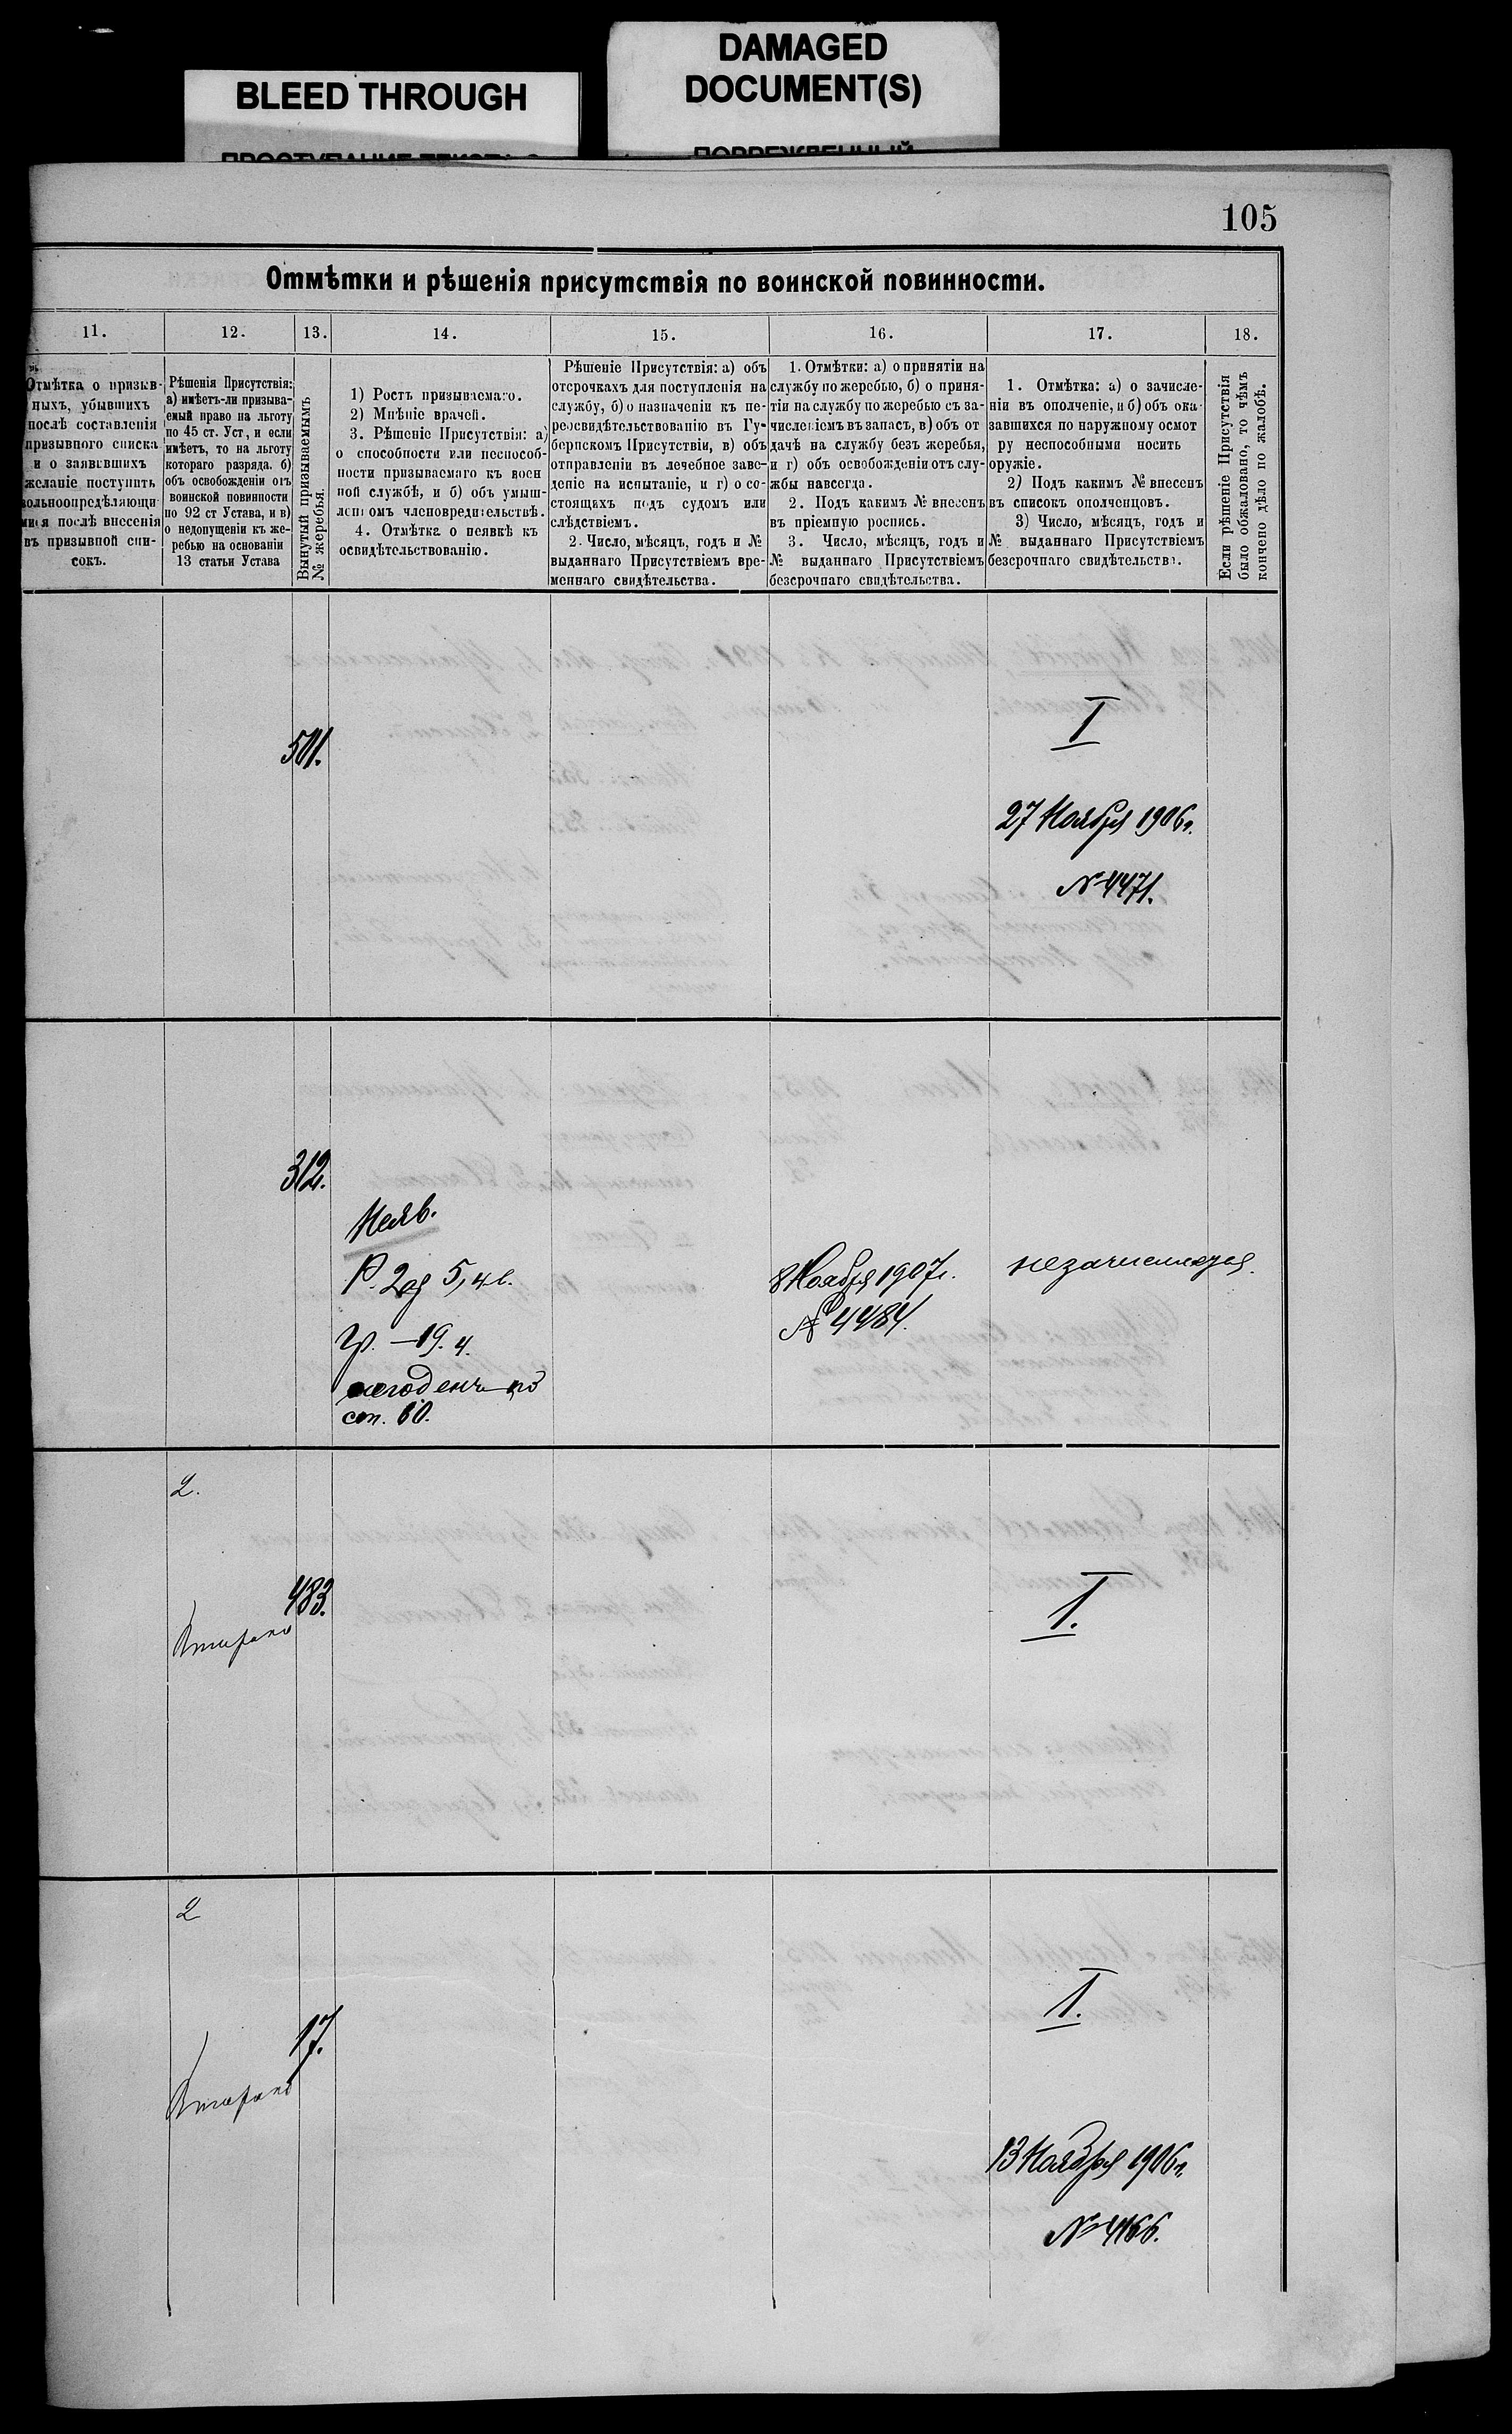 BLEED THROUGH
DAMAGED
DOCUMENT(S)
105
Отмѣтки и рѣшенія присутствія по воинской повинности.
11.
12.
13.
14.
15.
16.
17.
18.
Отмѣтка о призыв-
ныхъ, убывшихъ
послѣ составленія
призывного списка
и о заявившихъ
желаніе поступить
вольноопредѣляющи
мися послѣ внесенія
въ призывной спи-
сокъ.
Рѣшенія Присутствія:
а) имѣетъ-ли призыва-
емый право на льготу
по 45 ст. Уст, и если
имѣетъ, то на льготу
котораго разряда. б)
объ освобожденіи отъ
воинской повинности
по 92 ст Устава, и в)
о недопущеніи къ же-
ребью на основаніи
13 статьи Устава
Вынутый призываемымъ
№ жеребья.
1) Ростъ призываемаго.
2) Мнѣніе врачей.
3. Рѣшеніе Присутствія: а)
о способности или неспособ-
ности призываемаго къ воен
ной службѣ, и б) объ умыш-
леномъ членовредительствѣ.
4. Отмѣтка о неявкѣ къ
освидѣтельствованію.
Рѣшеніе Присутствія: а) объ
отсрочкахъ для поступленія на
службу, б) о назначеніи къ пе-
реосвидѣтельствованію въ Гу-
бернскомъ Присутствіи, в) объ
отправленіи въ лечебное заве-
деніе на испытаніе, и г) о со-
стоящихъ подъ судомъ или
слѣдствіемъ.
2. Число, мѣсяцъ, годъ и №
выданнаго Присутствіемъ вре-
меннаго свидѣтельства.
1. Отмѣтки: а) о принятіи на
службу по жеребью, б) о приня-
тіи на службу по жеребью съ за-
численіемъ въ запасъ, в) объ от
дачѣ на службу безъ жеребья,
и г) объ освобожденіи отъ слу-
жбы навсегда.
2. Подъ какимъ № внесенъ
въ пріемную роспись.
3. Число, мѣсяцъ, годъ и
№ выданнаго Присутствіемъ
безсрочнаго свидѣтельства.
1. Отмѣтка: а) о зачисле-
ніи въ ополченіе, и б) объ ока-
завшихся по наружному осмот
ру неспособными носить
оружіе.
2) Подъ какимъ № внесенъ
въ списокъ ополченцовъ.
3) Число, мѣсяцъ, годъ и
№ выданнаго Присутствіемъ
безсрочнаго свидѣтельства.
Если рѣшеніе Присутствія
было обжаловано, то чѣмъ
кончено дѣло по жалобѣ.
501.
I
27 Ноября 1906 г.
№ 4471.
312.
Неяв.
Р. 2 5
гр. — 19. ч.
ст. 60.
8 Ноября 1907 г.
№ 4484.
незачисляется.
2.
483.
I.
2
17.
I.
13 Ноября 1906 г.
№ 4166.